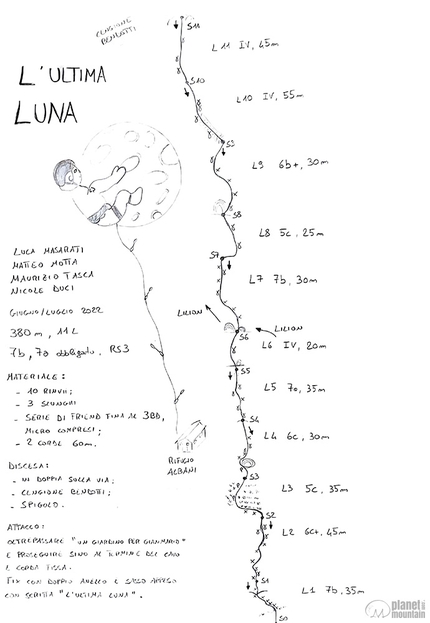 CENGIONE
BENDOTTI
L'ULTIMA
LUNA
LUCA MASARATI
MATTEO MOTTA
MAURIZIO TASCA
NICOLE DUCI
GIUGNO/LUGLIO 2022
380m, 11 L
7b, 7a obbligato. RS3
MATERIALE:
- 10 RINVII;
- 3 SCUNGHI
- SERIE DI FRIEND FINO AL 3BD,
MICRO COMPRESI;
- 2 CORDE 60m.
DISCESA:
- IN DOPPIA SULLA VIA;
- CENGIONE BENDOTTI;
- SPIGOLO.
ATTACCO:
OLTREPASSARE "UN GIARDINO PER GIANMARIO"
E PROSEGUIRE SINO AL TERMINE DEL CAVO
E CORDA FISSA.
FIX CON DOPPIO ANELLO E SASSO ATTACCO
CON SCRITTA "L'ULTIMA LUNA".
RIFUGIO
ALBANI
S11
L11 IV, 45m
S10
L10 IV, 55m
S9
L9 6b+, 30m
S8
L8 5c, 25m
S7
L7 7b, 30m
LILION
LILION
S6
L6 IV, 20m
S5
L5 7a, 35m
S4
L4 6c, 30m
S3
L3 5c, 35m
S2
L2 6c+, 45m
S1
L1 7b, 35m
S0
planet
mountain